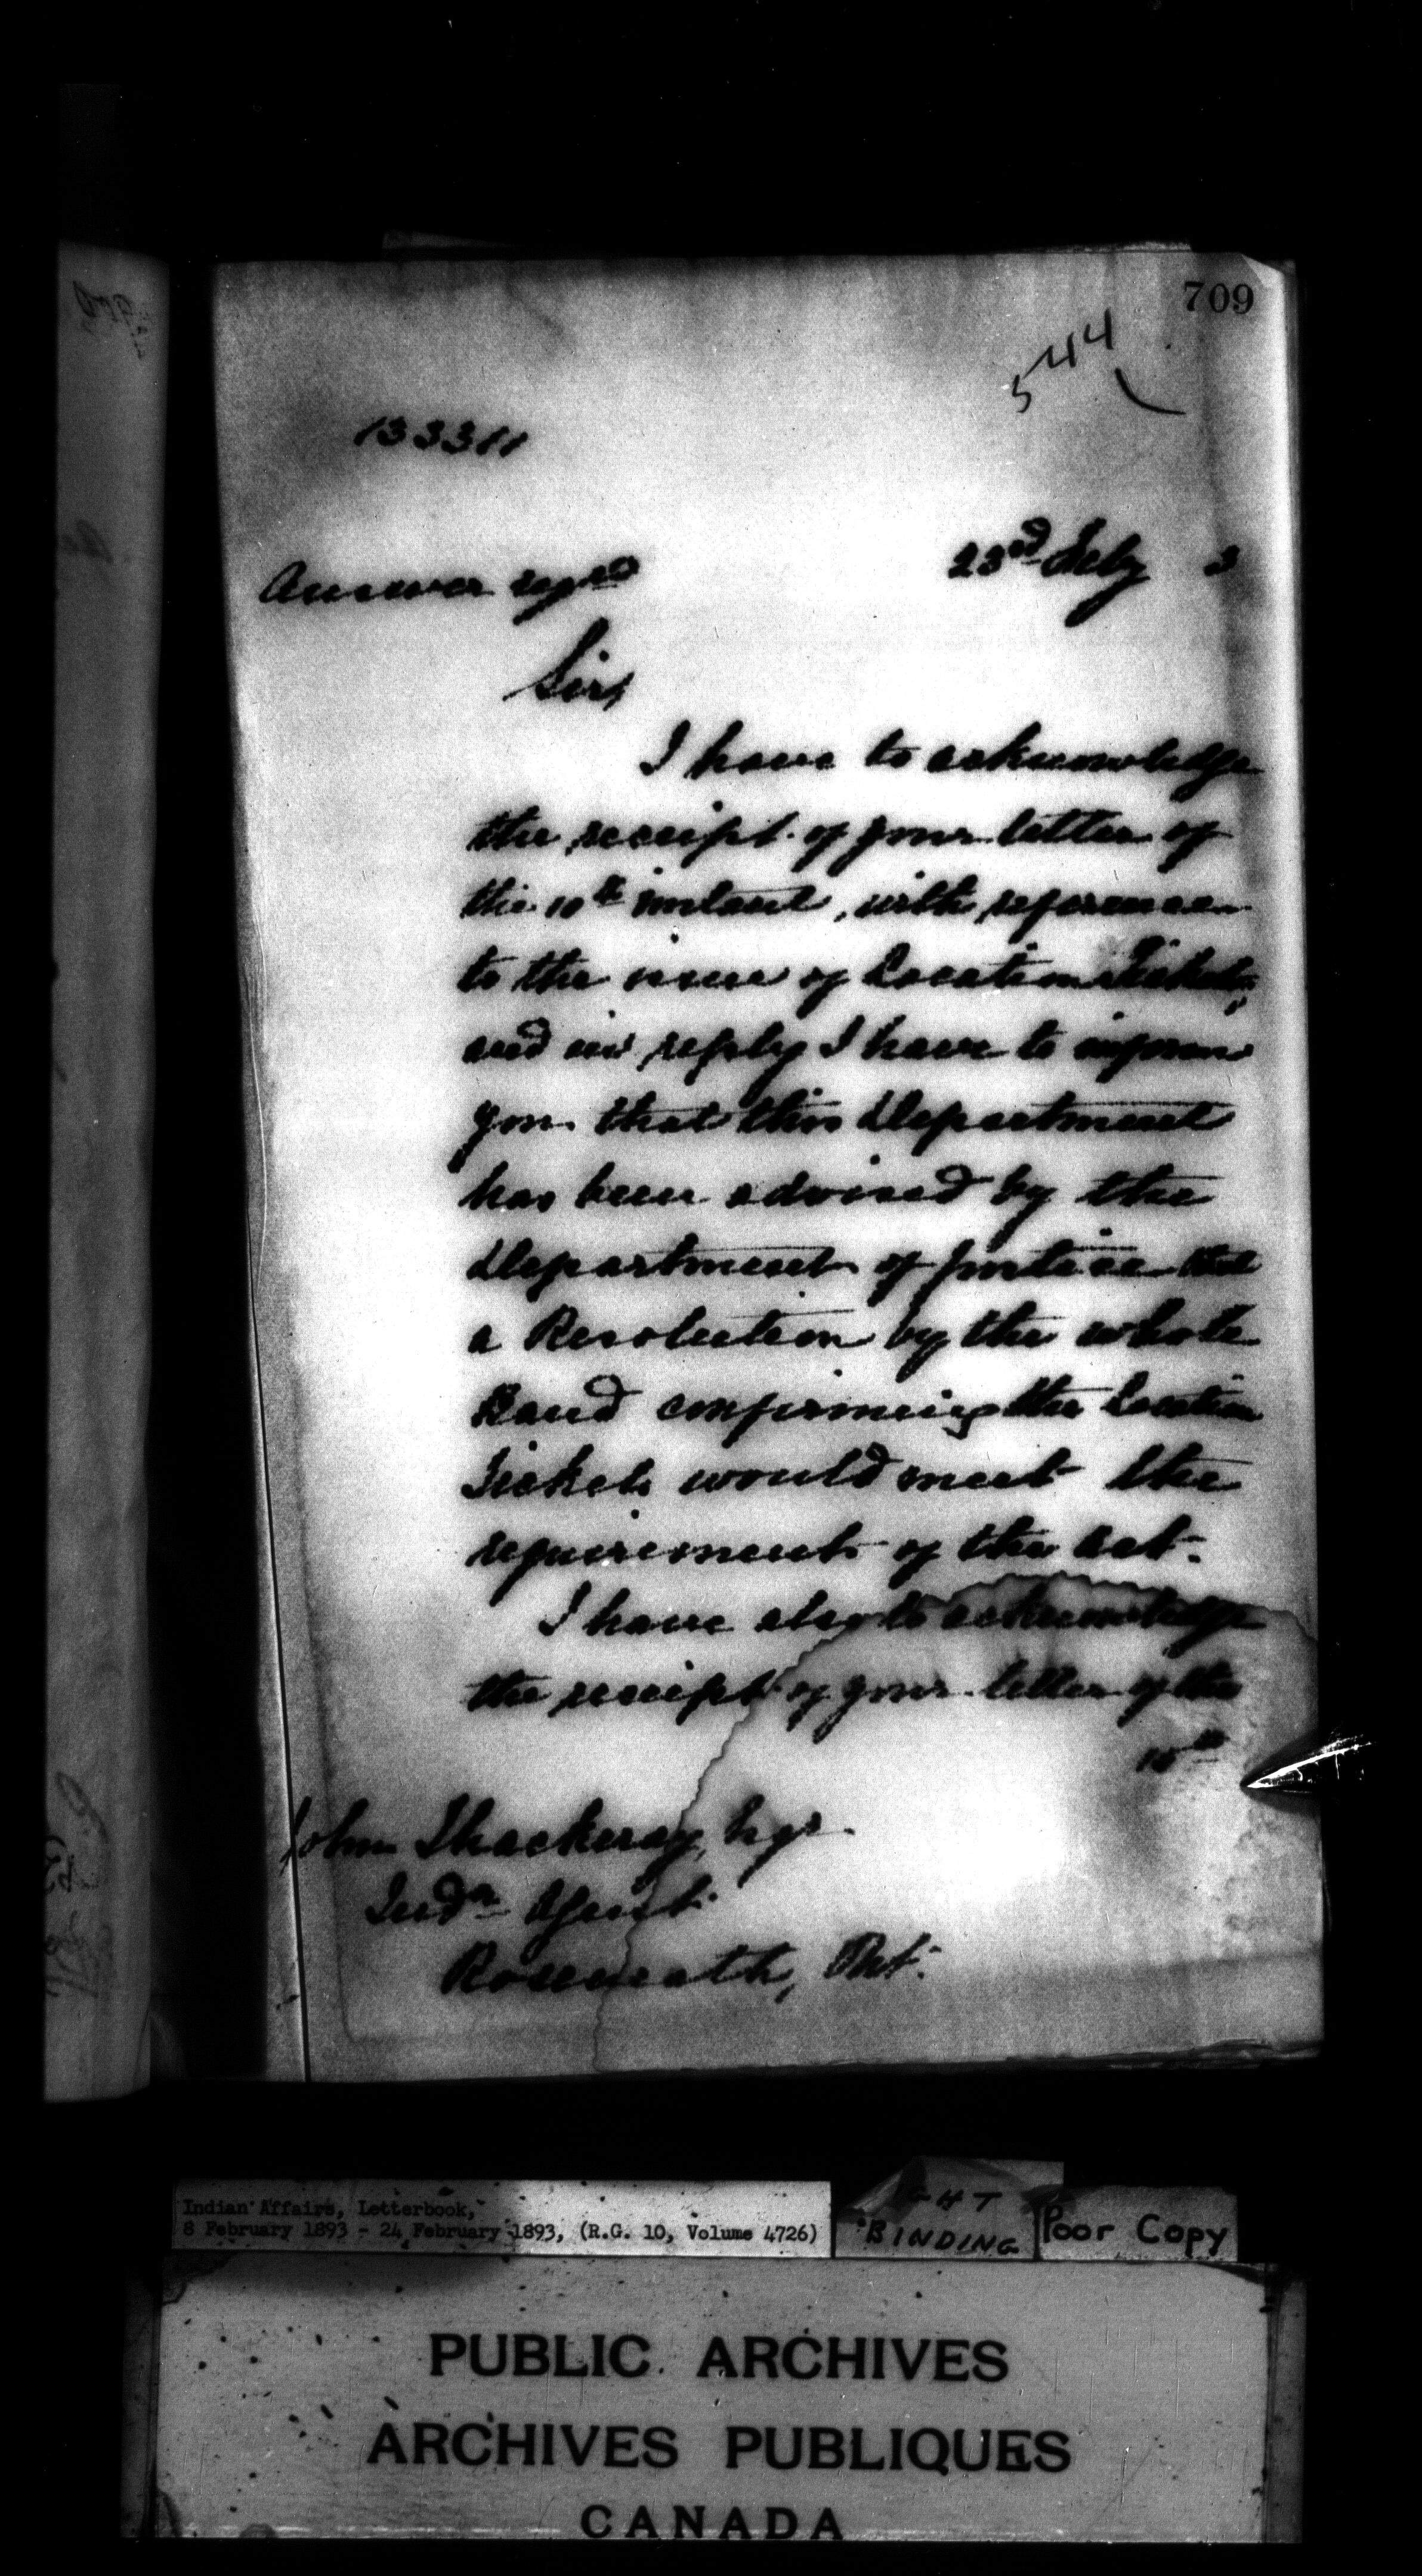 709
544
133311
23rd Feby 3
Answer reqrd
Sir,
I have to acknowledge
the receipt of your letter of
the 10th instant, with reference
to the issue of Location Tickets,
and in reply I have to inform
you that this Department
has been advised by the
Department of Justice that
a Resolution by the whole
Band confirming the Location
Tickets would meet the
requirements of the Act.
I have also to acknowledge
the receipt of your letter of the
John Thackeray, Esqr.
Indn Agent
Roseneath, Ont.
Indian Affairs, Letterbook,
8 February 1893 - 24 February 1893, (R.G. 10, Volume 4726)
GHT
BINDING
Poor Copy
PUBLIC ARCHIVES
ARCHIVES PUBLIQUES
CANADA